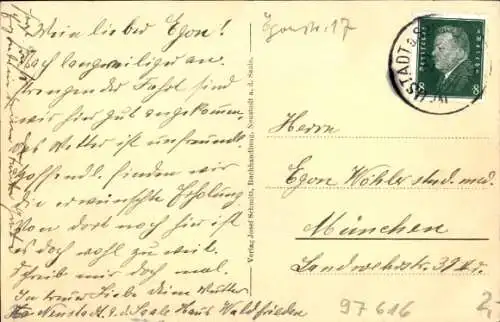 Mein lieber Egon!
Nach langweiliger an-
strengender Fahrt sind
wir hier gut angekommen.
das Wetter ist unfreundl.
hoffentl. finden wir
die erwünschte Erholung.
Von dort nach hier ist
es doch wohl zu weit.
Schreib mir doch mal.
In treuer Liebe deine Mutter
Neustadt a. d. Saale Haus Waldfrieden
Verlag Josef Schmitt, Buchhandlung, Neustadt a. d. Saale.
17
NEUSTADT a. d. S
8 8
Herrn
Egon Wöhler stud. med.
München
Landwehrstr.
97616